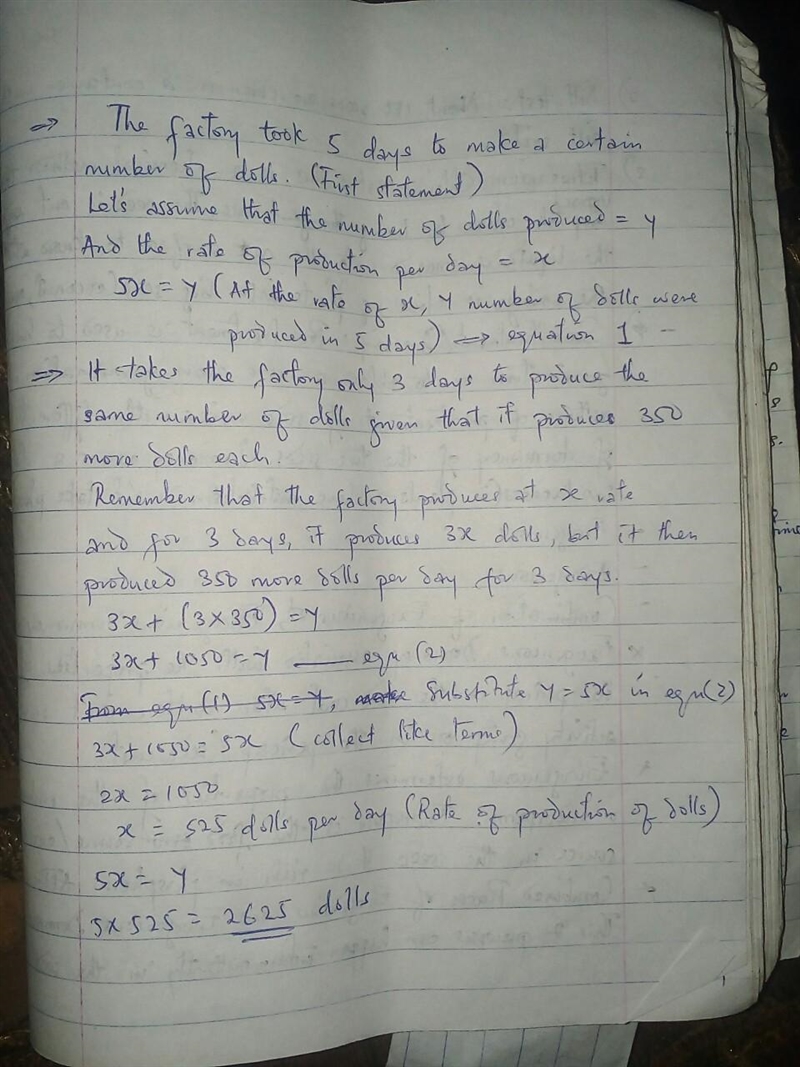 ⇒ The factory took 5 days to make a certain
number of dolls. (First statement)
Let's assume that the number of dolls produced = y
And the rate of production per day = x
5x = y (At the rate of x, y number of dolls were
produced in 5 days) ⇒ equation 1
⇒ It takes the factory only 3 days to produce the
same number of dolls given that it produces 350
more dolls each.
Remember that the factory produces at x rate
and for 3 days, it produces 3x dolls, but it then
produced 350 more dolls per day for 3 days.
3x + (3×350) = y
3x + 1050 = y —— eqn (2)
From eqn (1) 5x = y, Substitute y = 5x in eqn(2)
3x + 1050 = 5x (collect like terms)
2x = 1050
x = 525 dolls per day (Rate of production of dolls)
5x = y
5 x 525 = 2625 dolls